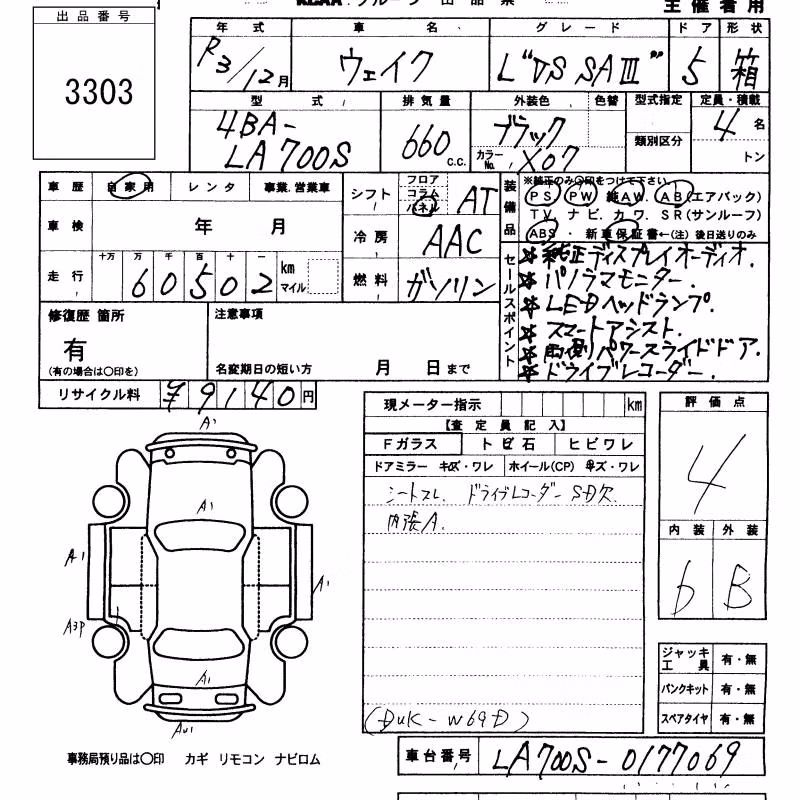 出品番号
3303
主催者用
年式 車名 グレード ドア 形状
R3/12月 ウェイク L"VS SAⅢ" 5 箱
型式 排気量 外装色 色替 型式指定 定員・積載
4BA-LA700S 660c.c. ブラック カラーNo. X07 類別区分 4名 トン
車歴 自家用 レンタ 事業.営業車 シフト フロア コラム パネル AT 装備品 ※純正のみ〇印をつけて下さい
PS PW 純AW. AB(エアバック)
TV. ナビ. カワ. SR(サンルーフ)
ABS・新車保証書←(注) 後日送りのみ
車検 年 月 冷房 AAC
走行 十万 万 千 百 十 一 60502 km マイル 燃料 ガソリン
セールスポイント
☆純正ディスプレイオーディオ.
☆パノラマモニター.
☆LEDヘッドランプ.
☆スマートアシスト.
☆両側パワースライドドア.
☆ドライブレコーダー.
修復歴 箇所 注意事項
有
(有の場合は〇印を) 名変期日の短い方 月 日まで
リサイクル料 ¥9140円
現メーター指示 km 評価点
【査定員記入】 4
Fガラス トビ石 ヒビワレ
ドアミラー キズ・ワレ ホイール(CP) キズ・ワレ
シートスレ. ドライブレコーダーSD欠
内張A.
内装 外装
b B
A1
A1
A1
A1
A3P
A1
AU1
ジャッキ工具 有・無
パンクキット 有・無
スペアタイヤ 有・無
(DUK-W69D)
事務局預り品は〇印 カギ リモコン ナビロム
車台番号 LA700S-0177069